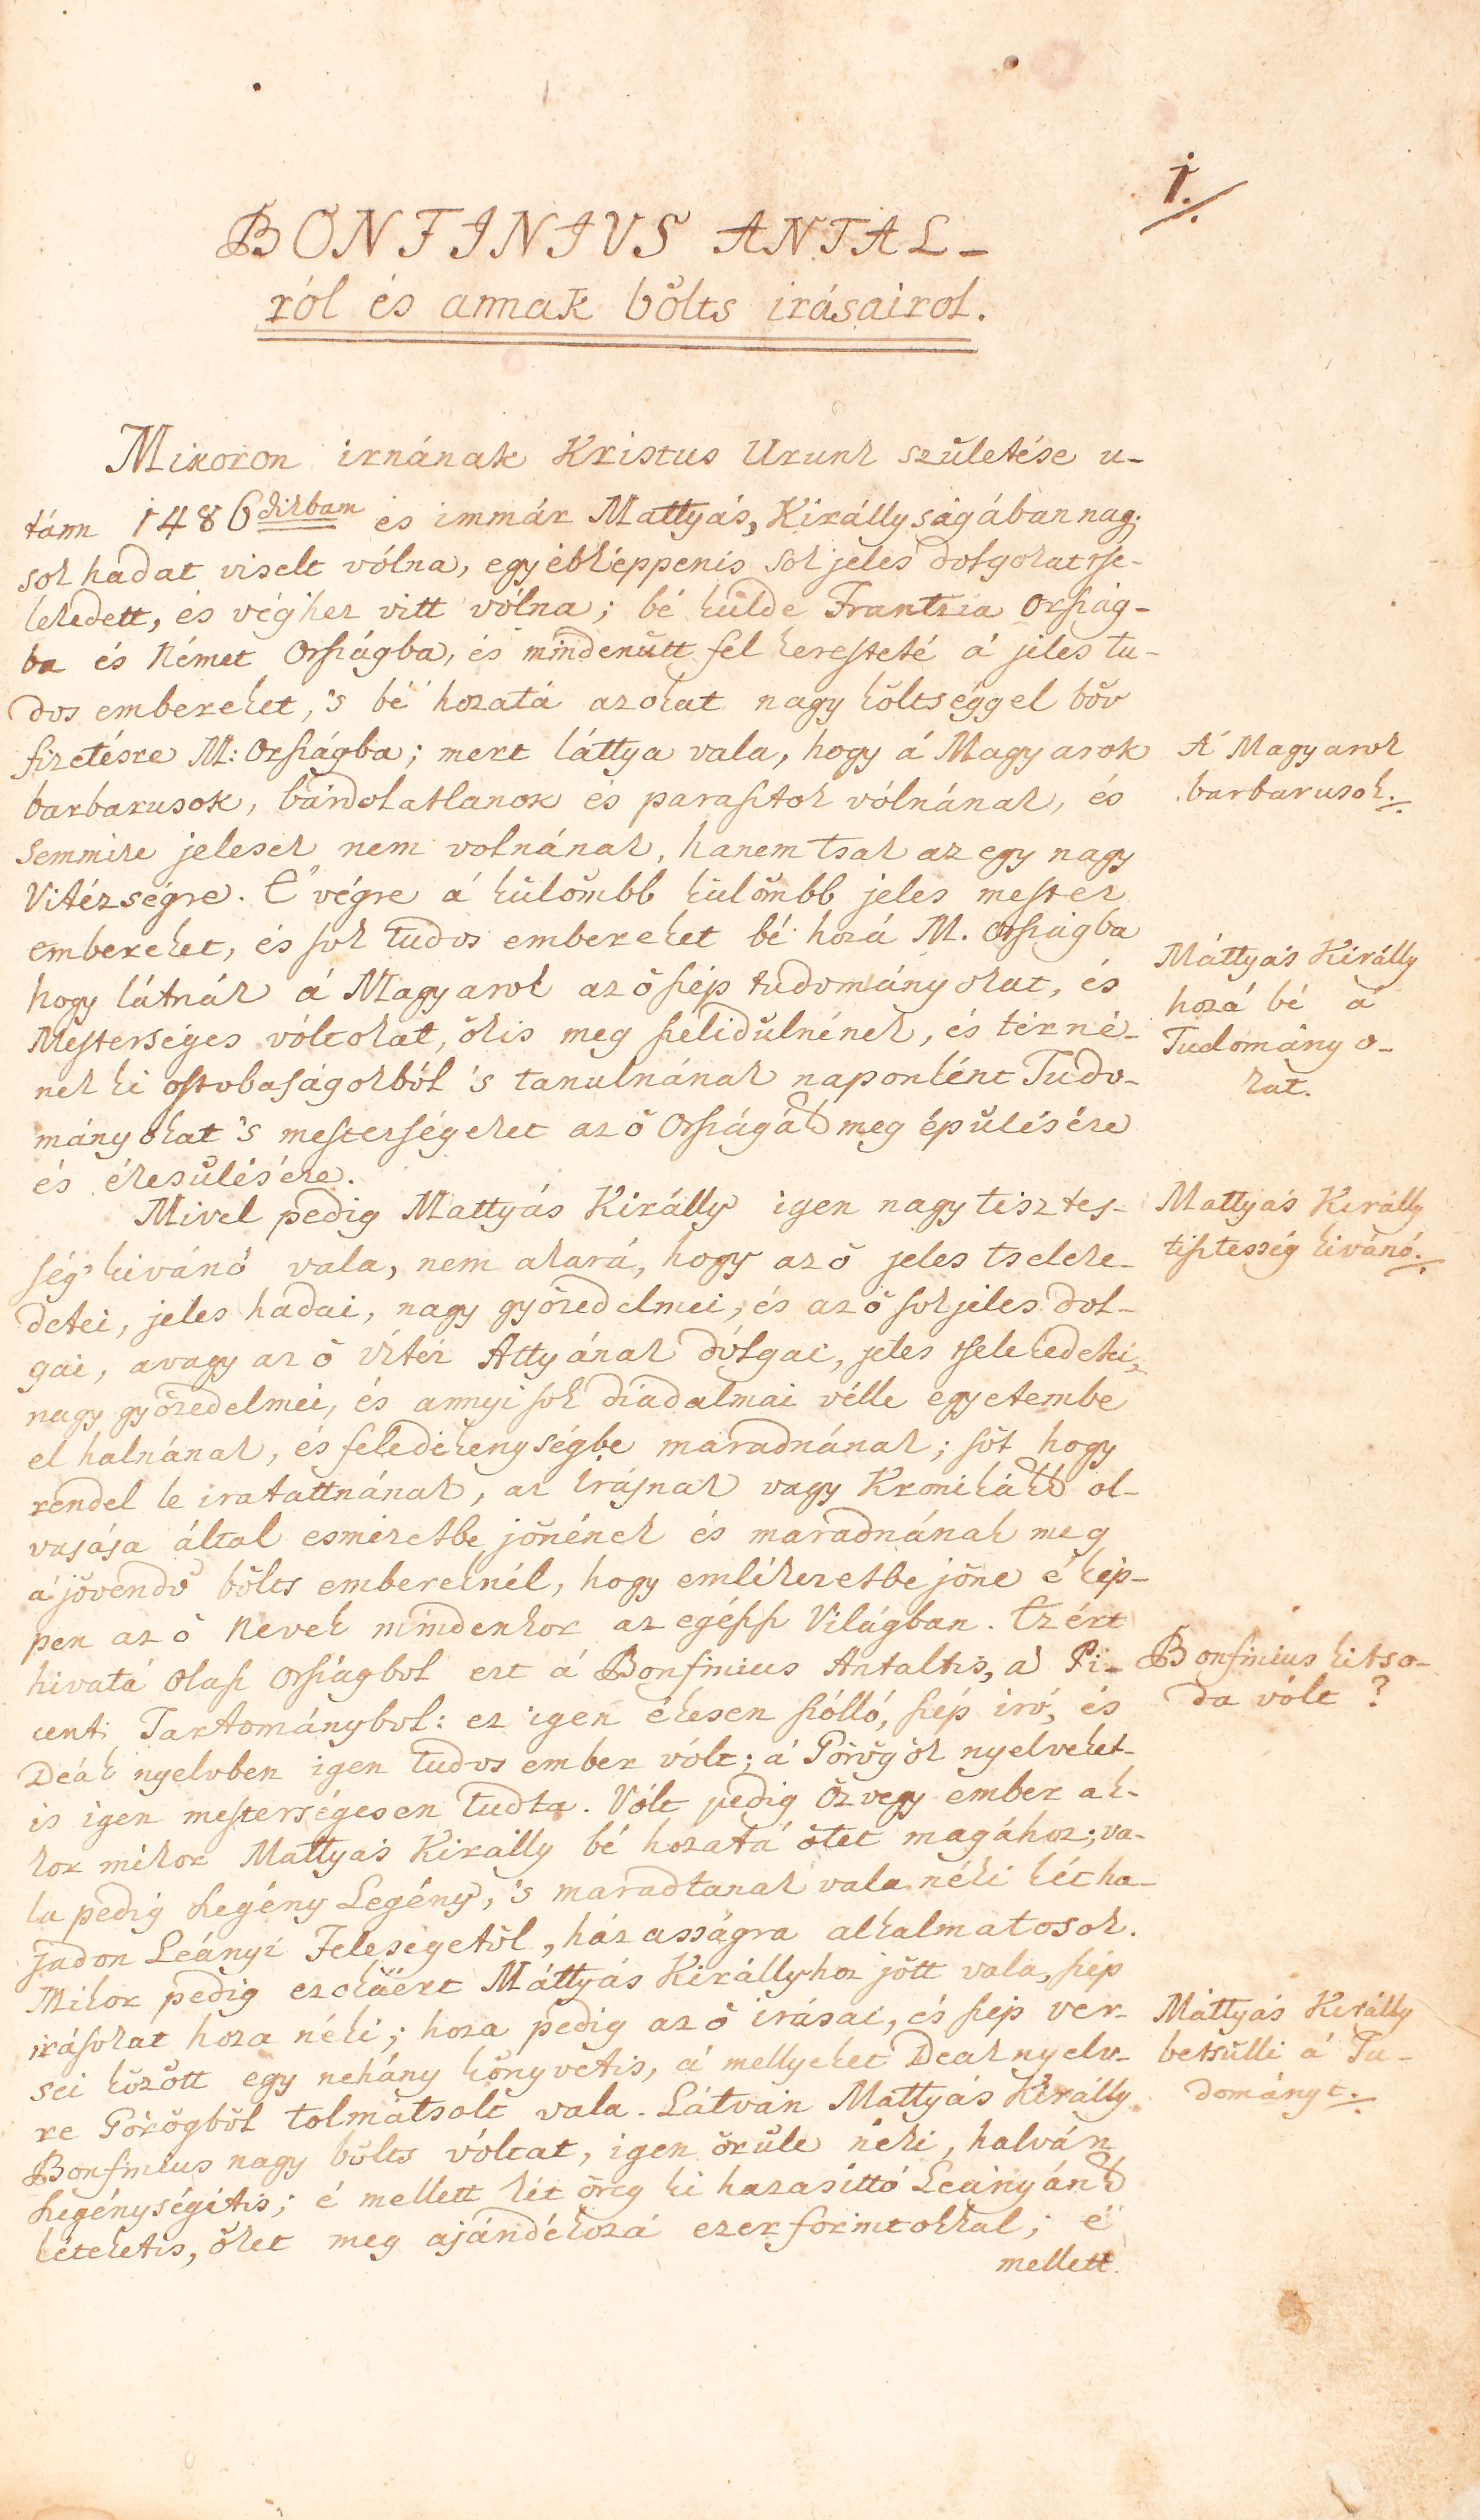 1.
BONFINIUS ANTAL-
ról és annak bőlts irásairol.
Mikoron irnának Kristus Urunk születése u-
tánn 1486dikban és immár Mattyás, Királlyságában nagy
sok hadat viselt vólna, egyébképpenis sok jeles dolgokat tse-
lekedett, és véghez vitt vólna; bé külde Frantzia Orszíág-
ba és Német Országba, és mindenütt fel keresteté á jeles tu-
dos embereket, 's bé hozatá azokat nagy költséggel bőv
fizetésre M: Országba; mert láttya vala, hogy á Magyarok
barbarusok, bárdolatlanok és parasztok vólnának, és
semmire jelesek nem volnának, hanem tsak az egy nagy
Vitézségre. E' végre á külömbb külömbb jeles mester
embereket, és sok tudos embereket bé hozá M. Országba
hogy látnák á Magyarok az ő szép tudományokat, és
Mesterséges vóltokat, őkis meg szelidülnének, és térné-
nek ki ostobaságokból 's tanulnának naponként Tudo-
mányokat 's mesterségeket az ő Országának meg épülésére
és ékesülésére.
Mivel pedig Mattyás Királly igen nagy tisztes-
ség kivánó vala, nem akará, hogy az ő jeles tseleke-
detei, jeles hadai, nagy győzedelmei, és az ő sok jeles dol-
gai, avagy az ő vitéz Attyának dólgai, jeles tselekedeti,
nagy győzedelmei, és annyi sok diadalmai vélle egyetembe
el halnának, és feledékenységbe maradnának; sőt hogy
rendel le iratattnának, az irásnak vagy Kronikának ol-
vasása által esmeretbe jőnének és maradnának meg
á jövendő bőlts embereknél, hogy emlékezetbe jőne é kép-
pen az ő Nevek mindenkor az egész Világban. Ezért
hivatá Olasz Országbol ezt á Bonfinius Antaltis, a' Pi-
centi Tartománybol: ez igen ékesen szólló, szép iró, és
Deák nyelvben igen tudos ember vólt; á Görögök nyelveket-
is igen mesterségesen tudta. Vólt pedig özvegy ember ak-
kor mikor Mattyás Királly bé hozatá őtet magához; va-
la pedig szegény Legény, 's maradtanak vala néki két ha-
jadon Leányi Feleségetől, házasságra alkalmatosok.
Mikor pedig ezokáért Máttyás Királlyhoz jött vala, szép
irásokat hoza néki; hoza pedig az ő irásai, és szép ver-
sei között egy nehány könyvetis, á mellyeket Deák nyelv-
re Görögből tolmátsolt vala. Látván Mattyás Királly
Bonfinius nagy bőlts vóltat, igen örüle néki, halván
szegénységétis; é mellett két öreg ki házasittó Leányának
lételetis, őket meg ajándékozá ezer forintokkal; é
mellett
Á Magyarok
barbarusok.
Máttyás Királly
hozá bé á
Tudományo-
kat.
Mattyás Királly
tisztesség kivánó.
Bonfinius kitso-
da vólt?
Máttyás Királly
betsülli á Tu-
dományt.